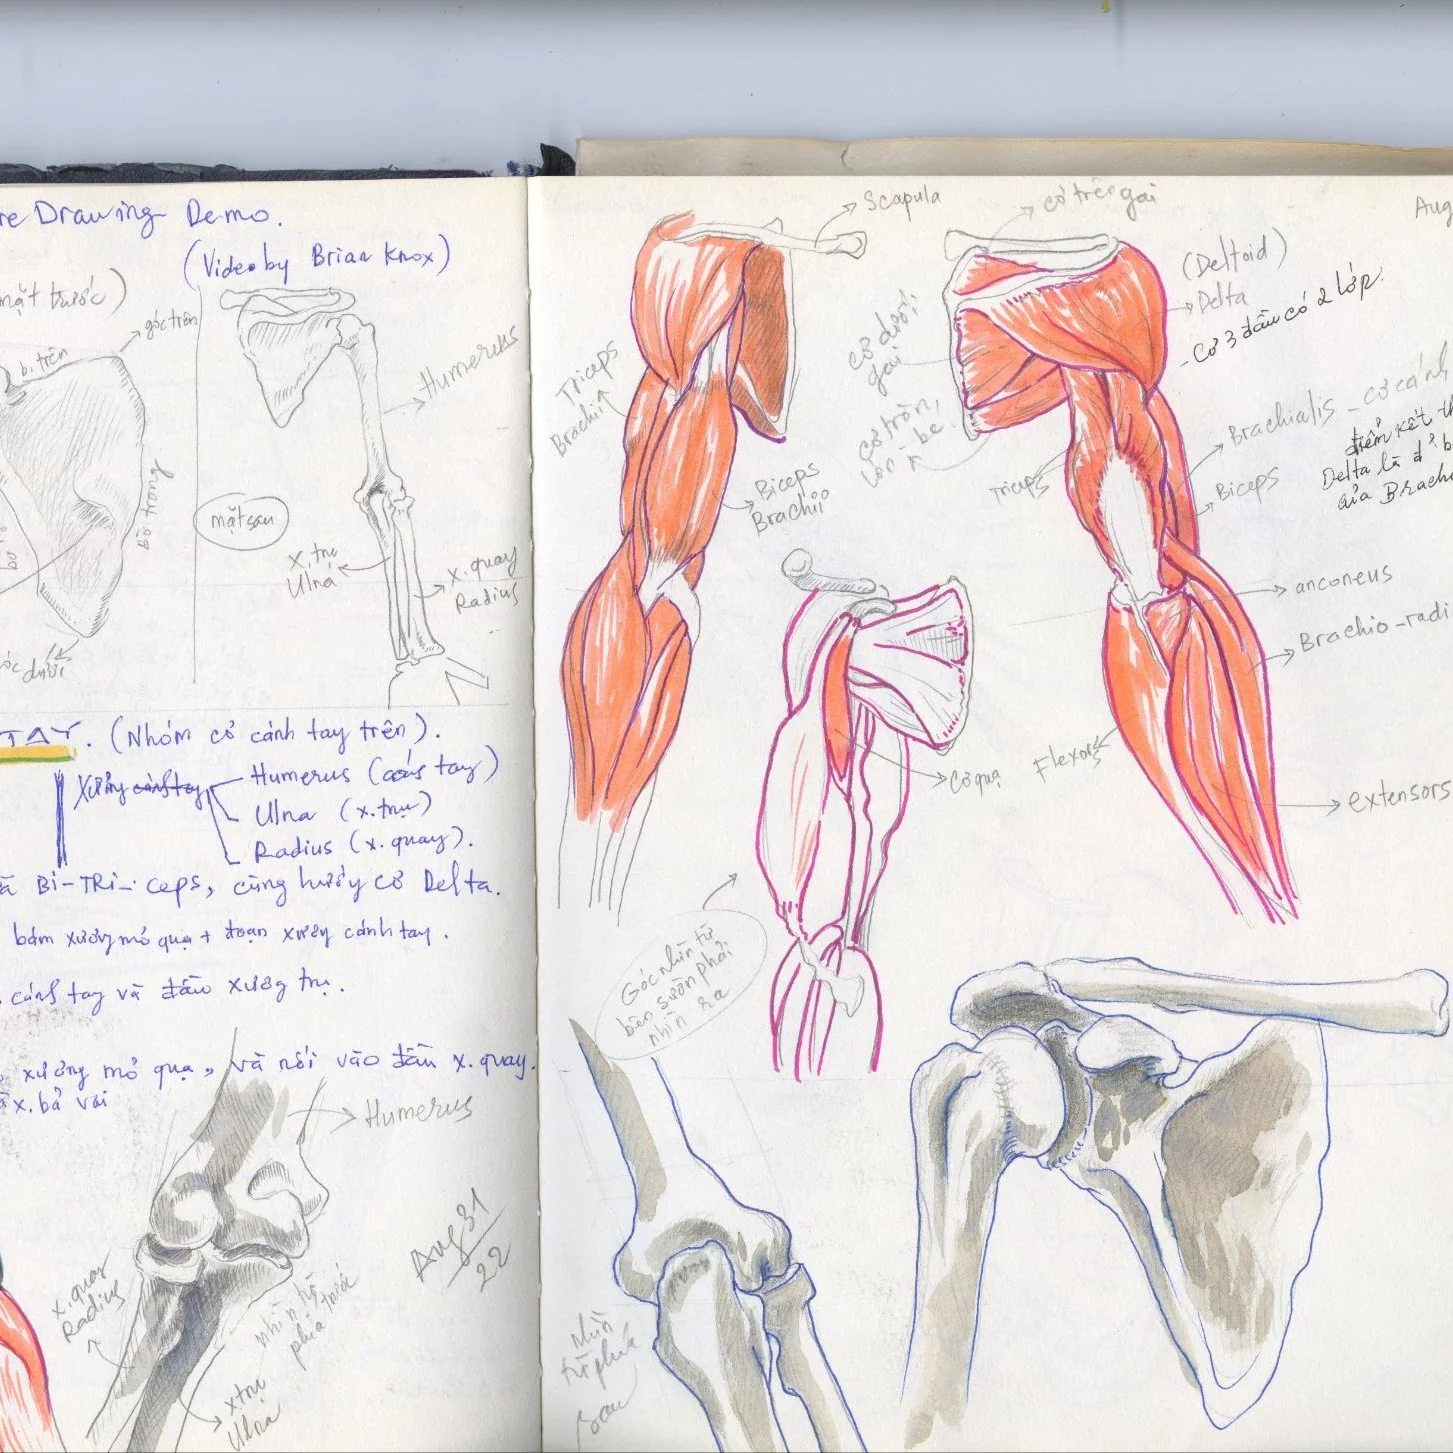 re Drawing Demo.
(Video by Brian Knox)
mặt trước)
góc trên
b. trên
Humerus
mặt sau
x. trụ
Ulna
x. quay
Radius
góc dưới
TAY. (Nhóm cơ cánh tay trên).
Xương cánh tay
Humerus (cánh tay)
Ulna (x. trụ)
Radius (x. quay).
à Bi-TRi-ceps, cùng hướng cơ Delta.
bám xương mỏ quạ + đoạn xương cánh tay.
cánh tay và đầu xương trụ.
xương mỏ quạ, và nối vào đầu x. quay.
x. bả vai
Humerus
x. quay
Radius
nhìn từ
phía trước
x trụ
Ulna
Aug 31
22
Scapula
cơ trên gai
Aug
(Deltoid)
Delta
- Cơ 3 đầu có 2 lớp.
cơ dưới
gai
cơ tròn,
lớn + bé
Triceps
Brachii
Biceps
Brachii
Triceps
Brachialis - cơ cánh
điểm kết th
Delta là ở b
của Brach
Biceps
anconeus
Brachio-radi
Flexors
extensors
Cơ quạ
Góc nhìn từ
bên sườn phải
nhìn ra
nhìn
từ phía
sau